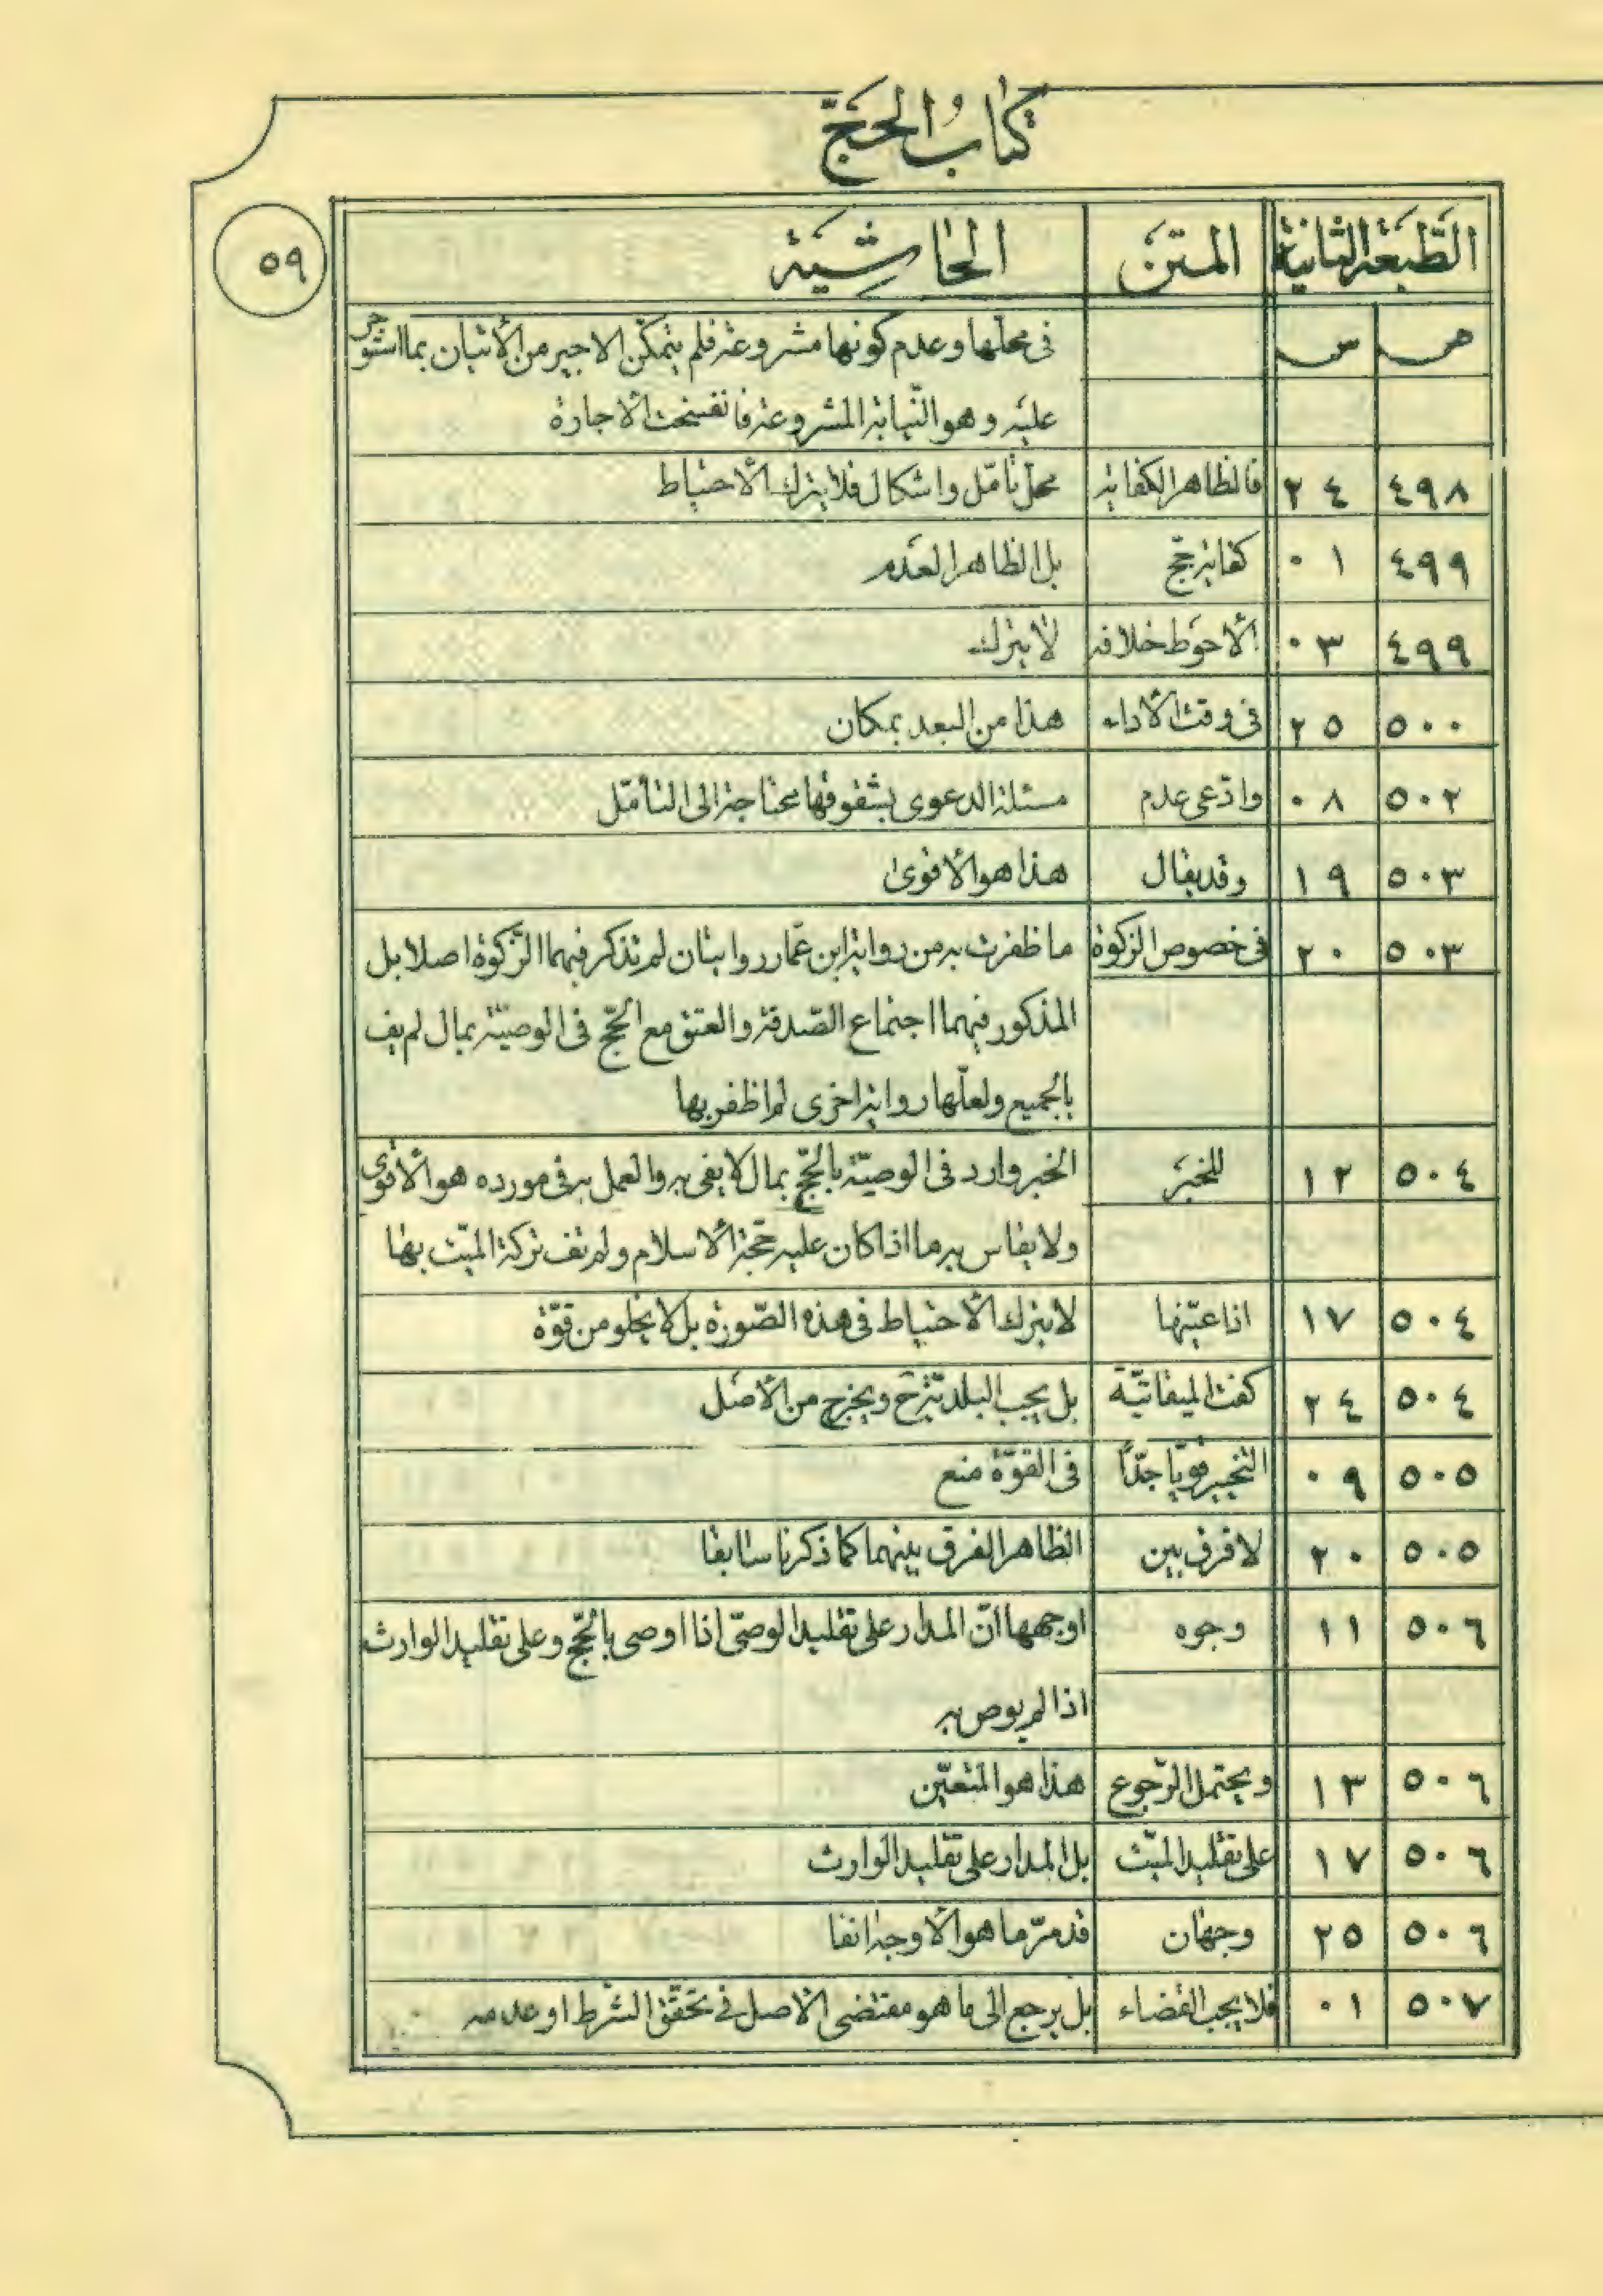 كتاب الحج
٥٩
الطبعة الثانية المتن الحاشية
ص س
في محلها وعدم كونها مشروعة فلم يتمكن الاجير من الأتيان بما استوجر
عليه وهو النيابة المشروعة فانفسخت الأجارة
٤٩٨ ٢٤ فالظاهر الكفاية محل تأمل واشكال فلا يترك الأحتياط
٤٩٩ ٠١ كفاية حج بل الظاهر العدم
٤٩٩ ٠٣ الأحوط خلافه لا يترك
٥٠٠ ٢٥ في وقت الأداء هذا من البعد بمكان
٥٠٢ ٠٨ وادّعى عدم مسئلة الدعوى بشقوقها محتاجة الى التأمّل
٥٠٣ ١٩ وقد يقال هذا هو الأقوى
٥٠٣ ٢٠ في خصوص الزكوة ما ظفرت به من رواية ابن عمّار روايتان لم تذكر فيهما الزّكوة اصلا بل
المذكور فيهما اجتماع الصّدقة والعتق مع الحجّ في الوصيّة بمال لم يف
بالجميع ولعلّها رواية اخرى لم اظفر بها
٥٠٤ ١٢ للخبر الخبر وارد في الوصيّة بالحجّ بمال لا يفي به والعمل به في مورده هو الأقوى
ولا يقاس به ما اذا كان عليه حجّة الأسلام ولم تف تركة الميّت بها
٥٠٤ ١٧ اذا عيّنها لا يترك الأحتياط في هذه الصّورة بل لا يخلو من قوّة
٥٠٤ ٢٤ كفت الميقاتيّة بل يجب البلديّة ح ويخرج من الأصل
٥٠٥ ٠٩ التخيير قويّا جدّا في القوّة منع
٥٠٥ ٢٠ لا فرق بين الظاهر الفرق بينهما كما ذكرنا سابقا
٥٠٦ ١١ وجوه اوجهها انّ المدار على تقليد الوصيّ اذا اوصى بالحجّ وعلى تقليد الوارث
اذا لم يوص به
٥٠٦ ١٣ ويحتمل الرّجوع هذا هو المتعيّن
٥٠٦ ١٧ على تقليد الميّت بل المدار على تقليد الوارث
٥٠٦ ٢٥ وجهان قد مرّ ما هو الأوجه انفا
٥٠٧ ٠١ فلا يجب القضاء بل يرجع الى ما هو مقتضى الأصل في تحقّق الشّرط او عدمه